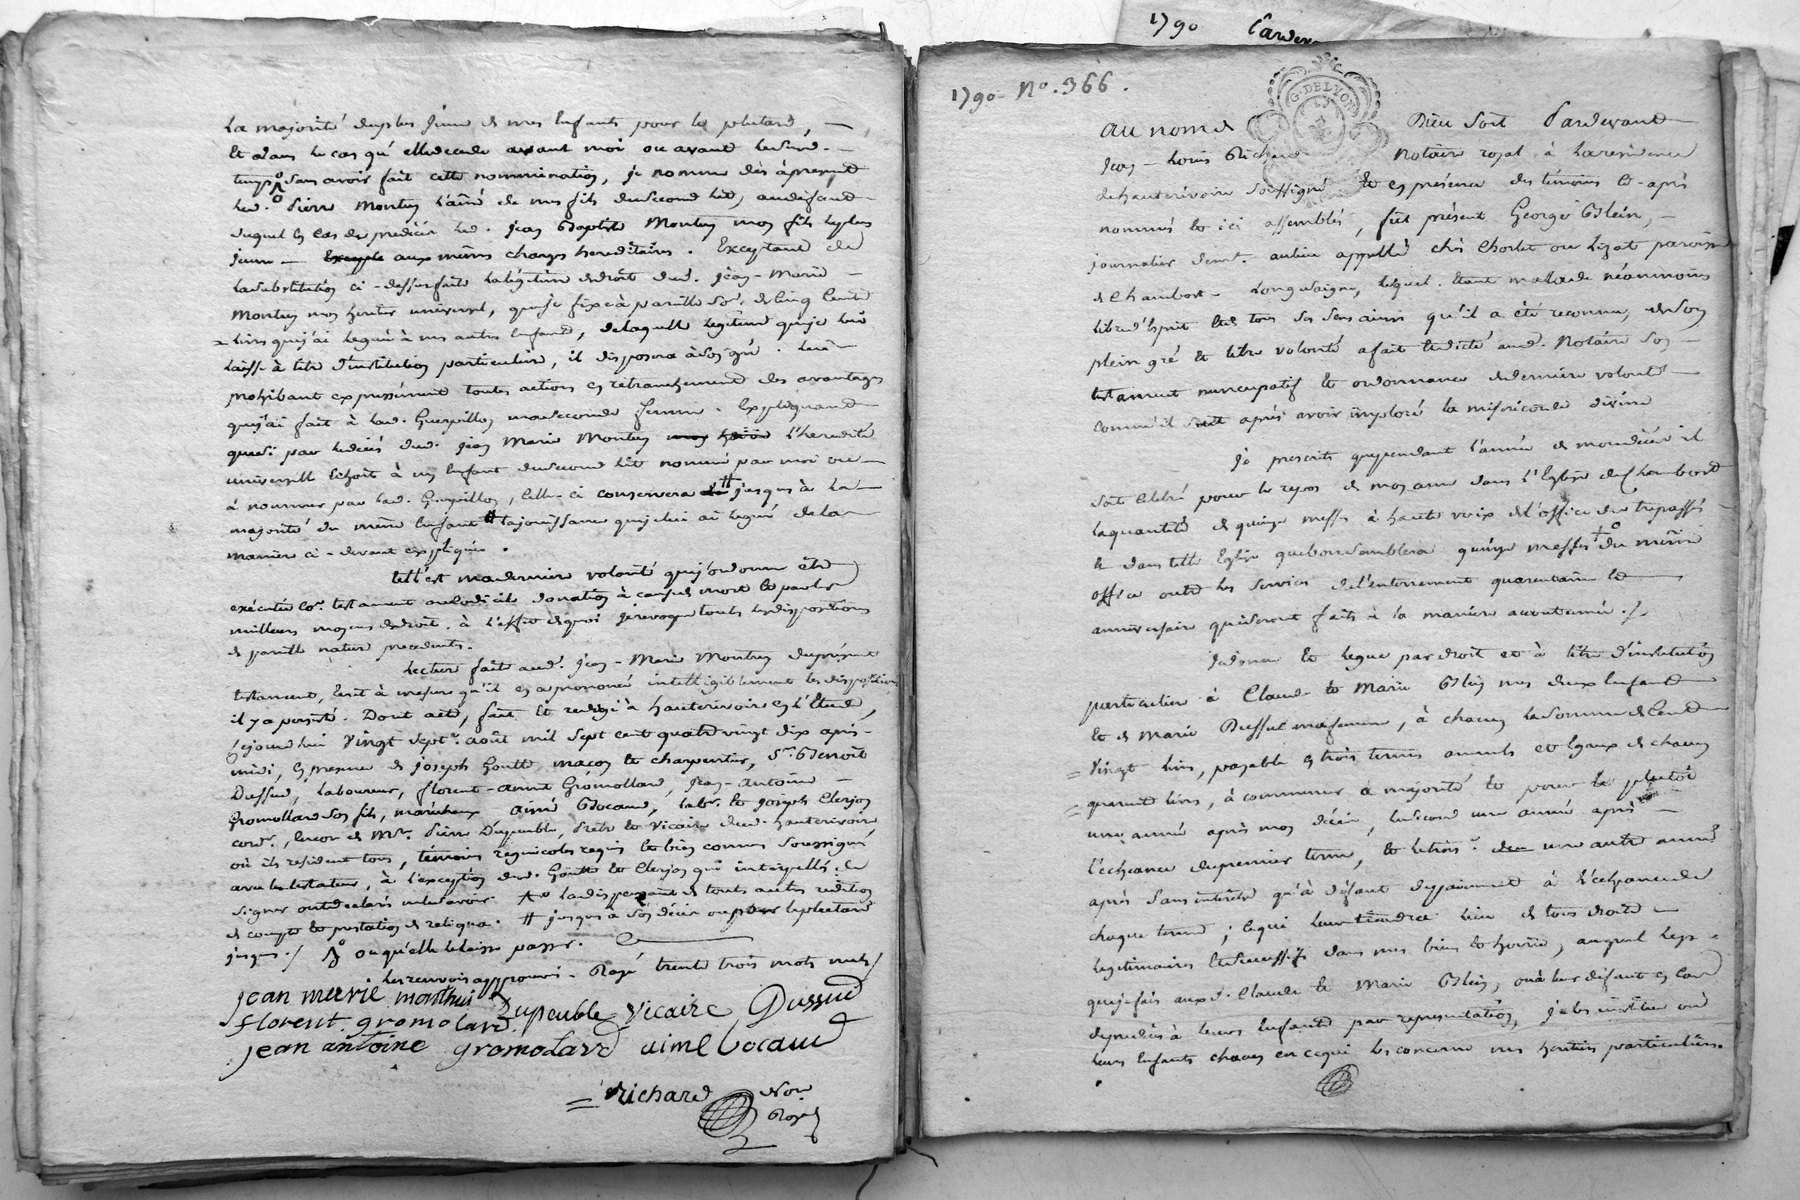 La majorité du plus jeune de mes enfants pour le plutard,
Et dans le cas qu'elle decede avant moi ou avant led. 
temps sans avoir fait cette nommination, je nomme dès àpresent
led. Pierre Montuy l'ainé de mes fils dusecond lit, audéfaut
duquel en cas de prédécès led. jean Baptiste Montuy mon fils leplus
jeune aux mêmes charges hereditaires. Exceptant de
la substitution ci-dessus faite la légitime de droit dud. jean-Marie
Montuy mon heritier universel, que je fixe à pareille so.e de Cinq Cent
livres que j'ai legué à mes autres enfants, delaquelle legitime que je lui
laisse à titre d'institution particuliere, il disposera àson gré. lui
prohibant expressément toutes actions en retranchement des avantages
que j'ai fait à lad. Guerpillon maseconde femme. Expliquant
que si par ledécès dud. jean Marie Montuy l'heredité
universelle échoit à un enfant dusecond lit nommé par moi ou
à nommer par lad. Guerpillon, celle-ci conservera jusques à la
majorité du même enfant lajouissance que je lui ai legué de la
maniere ci-devant expliquée.
telle est maderniere volonté que j'ordonne être
exécutée co.e testament ou codicile donation à cause de mort et par les
meilleurs moyens dedroit. à l'effet dequoi jerevoque toutes les dispositions
de pareille nature precedentes.
Lecture faite aud. jean-Marie Montuy duprésent
testament, écrit à mesure qu'il en a prononcé intelligiblement les dispositions
il y a persisté. Dont acte, fait et redigé à hauterivoire en l'Etude,
cejourd'hui vingt sept.e août mil sept cent quatre vingt dix après-
midi, en presence de joseph Goutte maçon et charpentier, S.r Benoit
Dussud, laboureur, florent-aimé Gromollard, jean-antoine
Gromollard son fils, maréchaux aimé Bocaud, lab.r et joseph Clerjon
cord.r, encor de M.re Pierre Dupeuble, Pretre et vicaire dud. hauterivoire
où ils resident tous, témoins requis et bien connus soussignés
avec letestateur, à l'exception desd. Goutte et Clerjon qui interpellés de
signer ont declaré nelesavoir. la dispensant de toutes autres redition
de compte et prestation de reliqua. # jusques à son décès ou leplutard
jusques / ou qu'elle le laisse passer.
Les renvois approuvés. Rayé trente trois mots nuls /
jean marie monthui Dupeuble vicaire Dussud
florent. gromolard
jean antoine gromolard aimé bocaud
Richard No.re
Roy.l
1790 Carden
1790 - N.o 366.
G. DE LYON
au nom de Dieu soit Pardevant
Jean-Louis Richard Notaire royal à larésidence
dehauterivoire soussigné et en présence des témoins ci-après
nommés et ici assemblés, fut présent George Blein,
journalier demt. aulieu appellé chés Chorlet ou Lizat paroisse
de Chambost-Longesaigne, lequel étant malade néanmoins
libre d'Esprit et de tous ses sens ainsi qu'il a été reconnu, de son
plein gré et libre volonté a fait et dicté aud. Notaire son
testament nuncupatif et ordonnance dederniere volonté
comme il suit après avoir imploré la miséricorde divine
Je prescrits que pendant l'année de mon décès il
soit célébré pour le repos de mon ame dans l'Eglise de Chambost
laquantité de quinze messes à haute voix de l'office des trépassés
et dans telle Eglise que bon semblera quinze messes du même
office outre les services de l'enterrement quarantaine et
anniversaire qui seront faits à la maniere accoutumée./.
Jedonne et legue par droit et à titre d'institution
particuliere à Claude et Marie Blein mes deux enfants
et de Marie Dussud mafemme, à chacun la somme de Cent
vingt livres, payable en trois termes annuels et égaux de chacun
quarante livres, à commencer à majorité et pour le plutôt
une année après mon décès, lesecond une année après
l'échéance dupremier terme, et le trois.e une autre année
après sans intérêts qu'à défaut depaiement à l'échéance de
chaque terme; cequi leur tiendra lieu de tous droits
legitimaires et successifs dans mes biens et hoirie, auquel legs
que je fais auxd. Claude et Marie Blein, ou à leur défaut en cas
deprédécès à leurs enfants par representation, je les institue ou
leurs enfants chacun en cequi les concerne mes heritiers particuliers.